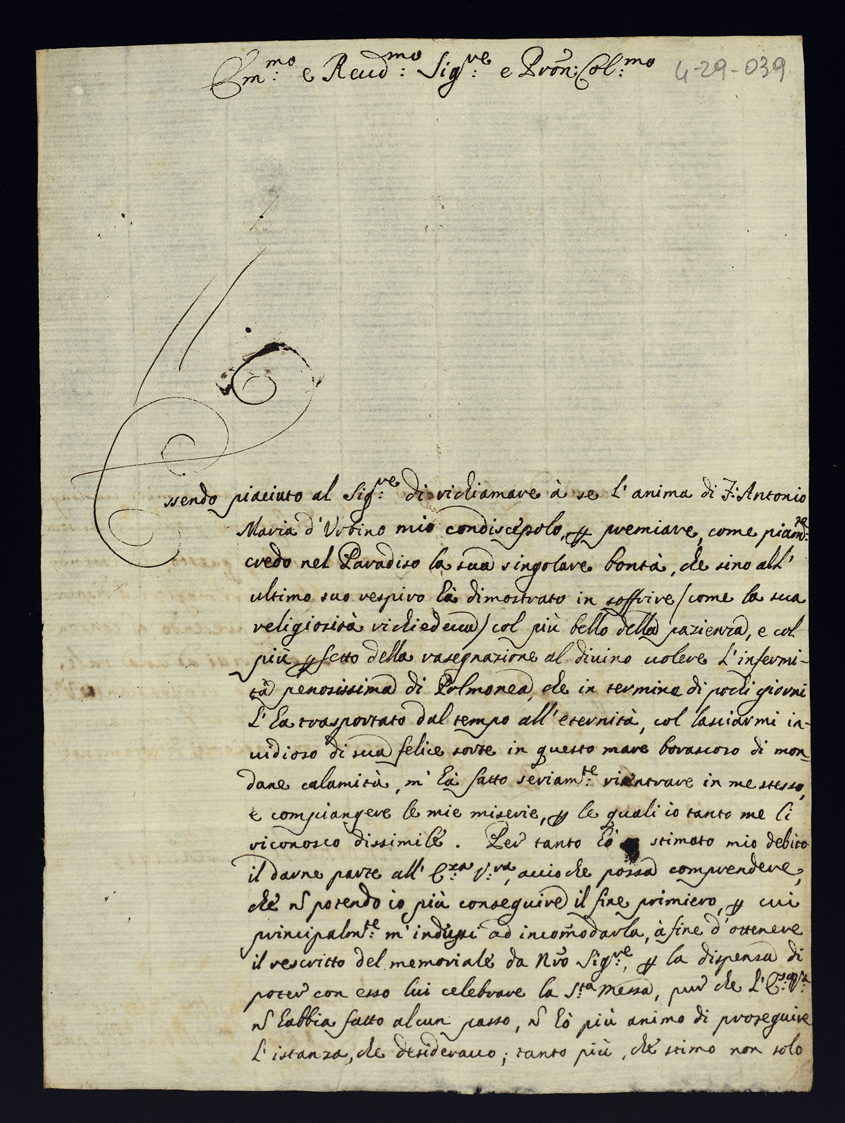 Em.mo e Reud.mo Sig.re e Pron: Col.mo 4-29-039
Essendo piaciuto al Sig.re di richiamare à se l'anima di F: Antonio
Maria d'Urbino mio condiscepolo, p premiare, come piam.te
credo nel Paradiso la sua singolare bontà, che sino all'
ultimo suo respiro hà dimostrato in soffrire / come la sua
religiosità richiedeua / col più bello della pazienza, e col
più pfetto della rasegnazione al diuino uolere l'infermi-
tà penosissima di Polmonea, che in termine di pochi giorni
l'ha trasportato dal tempo all'eternità, col lasciarmi in-
uidioso di sua felice sorte in questo mare borascoso di mon-
dane calamità, m'hà fatto seriam.te rientrare in me stesso,
e compiangere le mie miserie, p le quali io tanto me li
riconosco dissimile. Per tanto hò stimato mio debito
il darne parte all' E.za V.ra, acciò che possa comprendere,
che n potendo io più conseguire il fine primiero, p cui
principalm.te m'indussi ad incomodarla, à fine d'ottenere
il rescritto del memoriale da Nro Sig.re, p la dispensa di
poter con esso lui celebrare la S.ta Messa, pur che l'E.za V.ra
n habbia fatto alcun passo, n hò più animo di proseguire
l'istanza, che desiderauo; tanto più, che stimo non solo